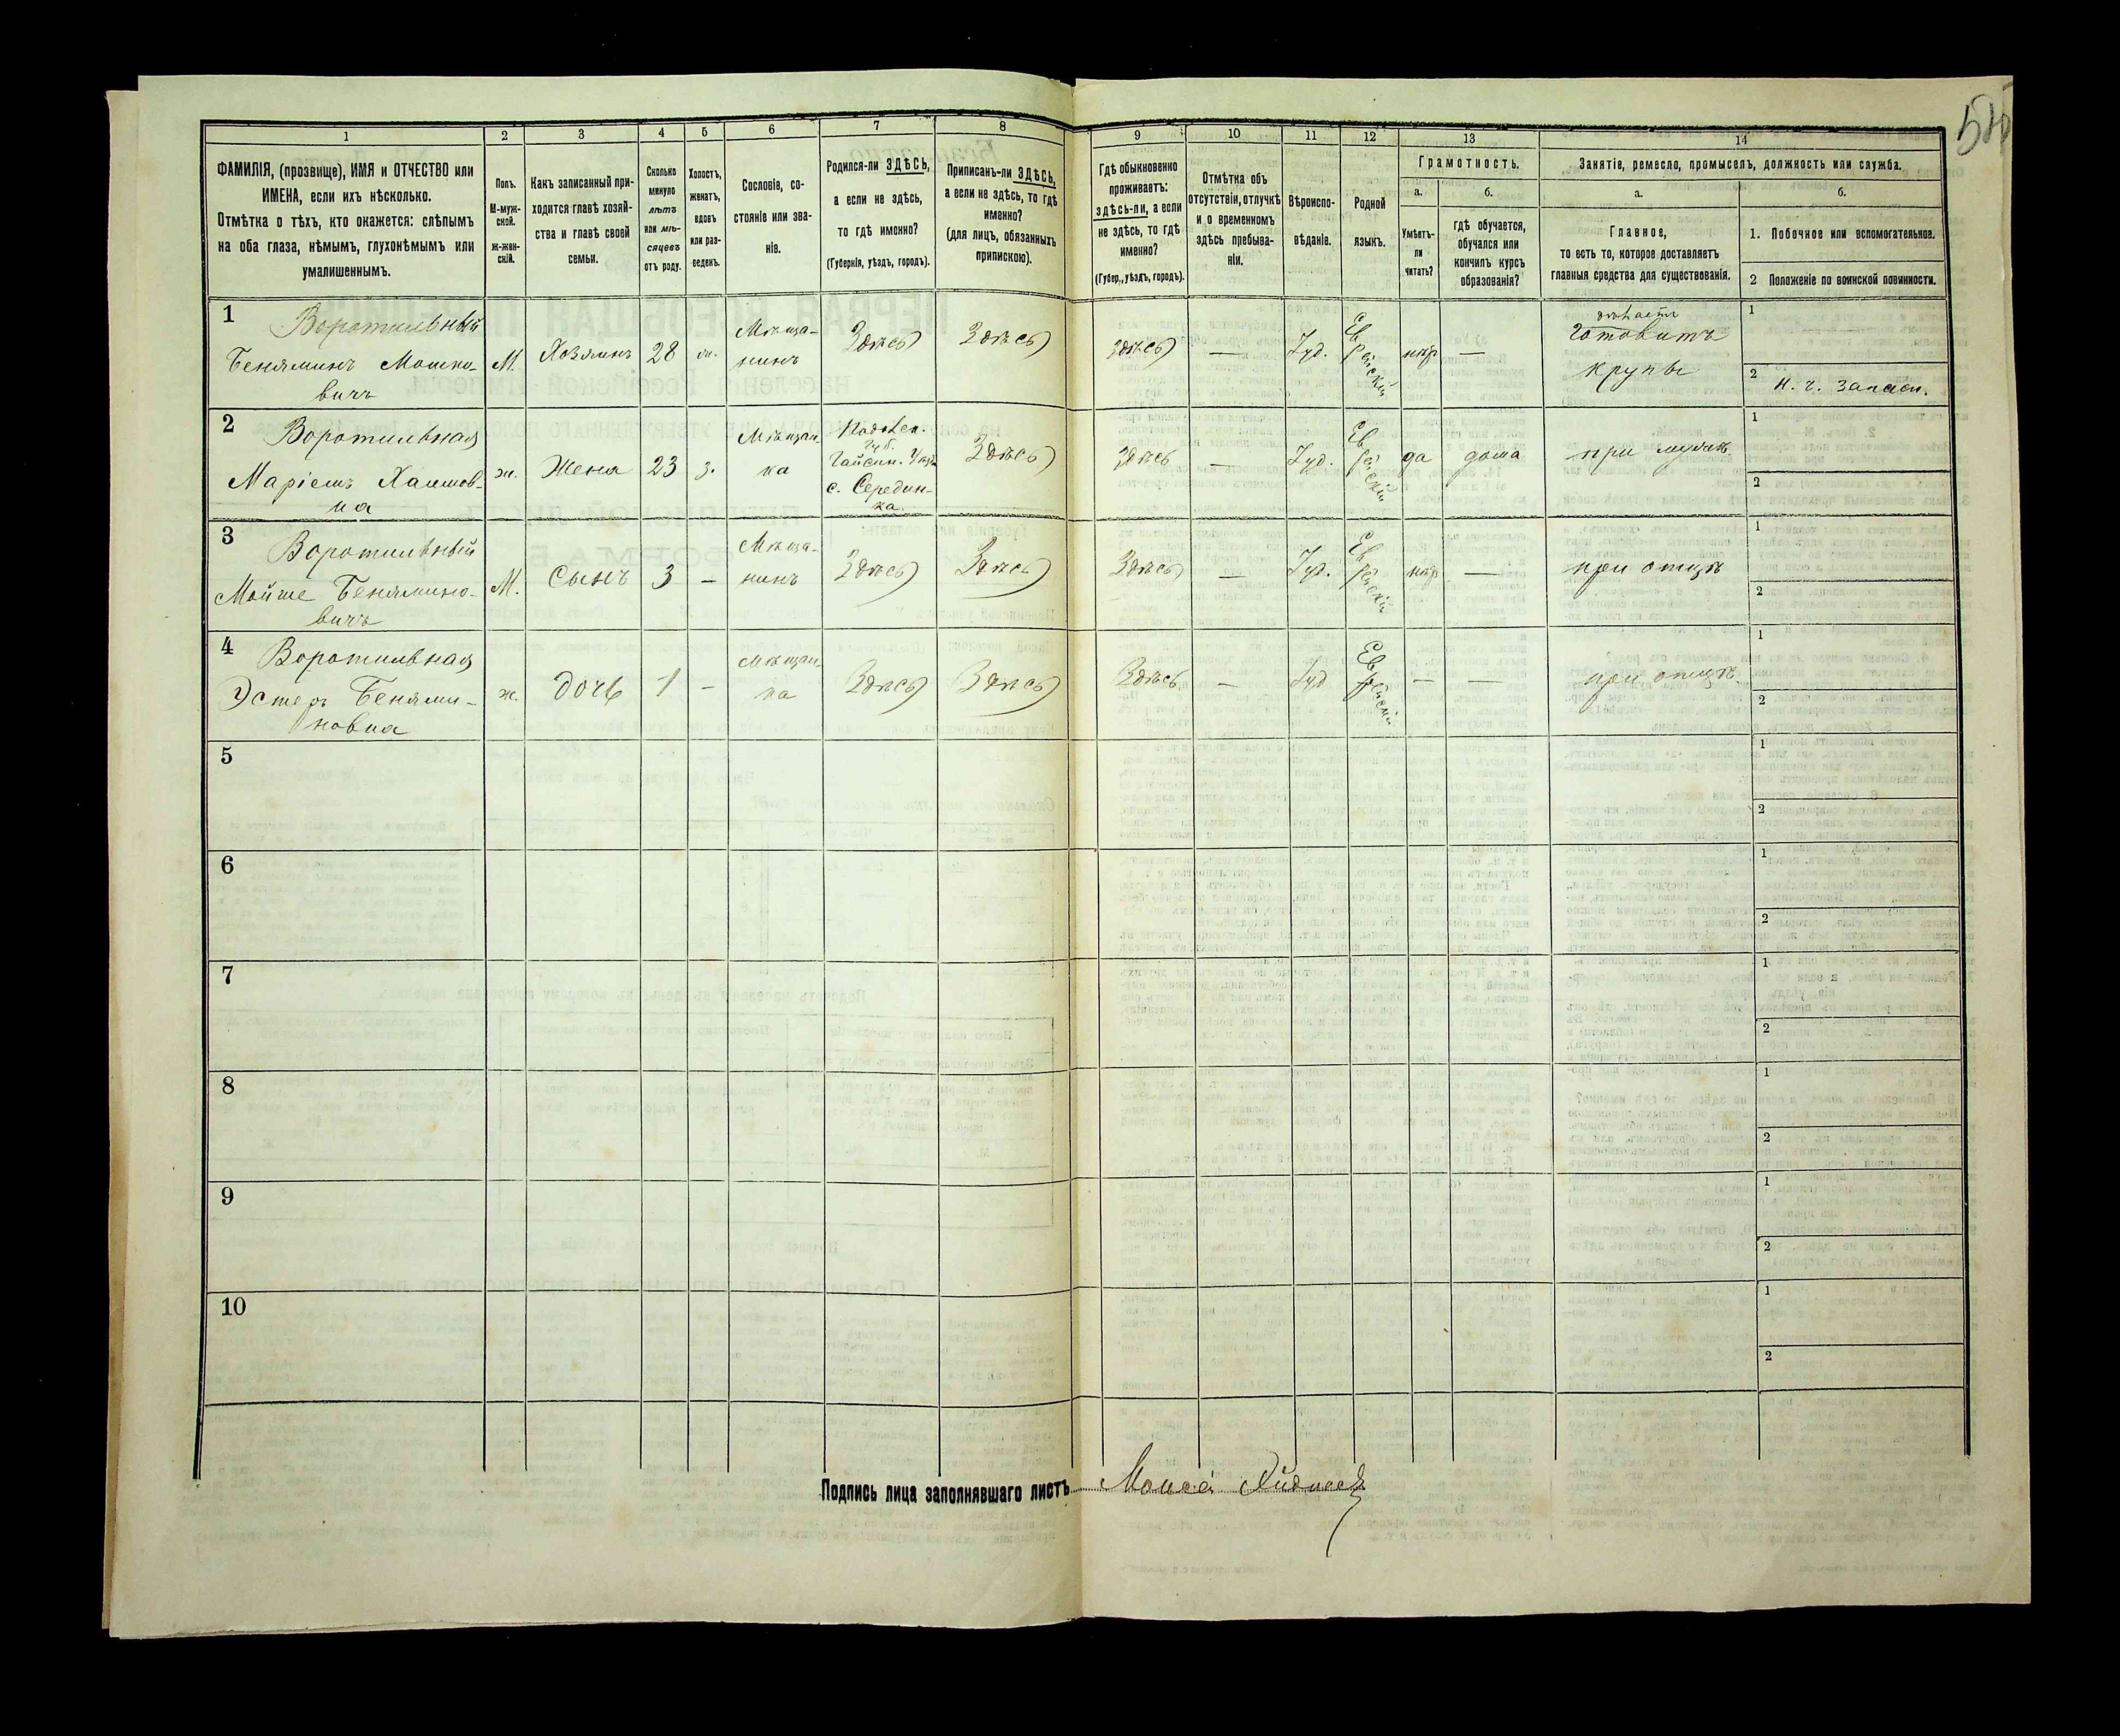 1 2 3 4 5 6 7 8 9 10 11 12 13 14
ФАМИЛІЯ, (прозвище), ИМЯ и ОТЧЕСТВО или
ИМЕНА, если ихъ нѣсколько.
Отмѣтка о тѣхъ, кто окажется: слѣпымъ
на оба глаза, нѣмымъ, глухонѣмымъ или
умалишеннымъ.
Полъ.
М-муж-
ской.
ж-жен-
скій.
Какъ записанный при-
ходится главѣ хозяй-
ства и главѣ своей
семьи.
Сколько
минуло
лѣтъ
или мѣ-
сяцевъ
отъ роду.
Холостъ,
женатъ,
вдовъ
или раз-
веденъ.
Сословіе, со-
стояніе или зва-
ніе.
Родился-ли ЗДѢСЬ,
а если не здѣсь,
то гдѣ именно?
(Губернія, уѣздъ, городъ).
Приписанъ-ли ЗДѢСЬ,
а если не здѣсь, то гдѣ
именно?
(для лицъ, обязанныхъ
припискою).
Гдѣ обыкновенно
проживаетъ:
здѣсь-ли, а если
не здѣсь, то гдѣ
именно?
(Губер., уѣздъ, городъ).
Отмѣтка объ
отсутствіи, отлучкѣ
и о временномъ
здѣсь пребыва-
ніи.
Вѣроиспо-
вѣданіе.
Родной
языкъ.
Грамотность.
а.
Умѣетъ-
ли
читать?
б.
гдѣ обучается,
обучался или
кончилъ курсъ
образованія?
Занятіе, ремесло, промыселъ, должность или служба.
а.
Главное,
то есть то, которое доставляетъ
главныя средства для существованія.
б.
1. Побочное или вспомогательное.
2 Положеніе по воинской повинности.
1
Воротильный
Беняминъ Мошко-
вичъ
М.
Хозяинъ
28
Мѣща-
нинъ
Здѣсь
Здѣсь
Здѣсь
—
Іуд.
Еврейскій
нѣт
—
готовитъ
крупы
1
2 Н. ч. запасн.
2
Воротильная
Маріемъ Хаимов-
на
ж.
Жена
23
з.
Мѣщан
ка
Подольск.
губ.
Гайсин. Уѣз.
с. Середин-
ка.
Здѣсь
Здѣсь
—
Іуд.
Еврейскій
да
дома
при мужѣ
1
2
3
Воротильный
Мойше Бенямино-
вичъ
М.
Сынъ
3
—
Мѣща-
нинъ
Здѣсь
Здѣсь
Здѣсь
—
Іуд.
Еврейскій
нѣт
—
при отцѣ
1
2
4
Воротильная
Эстеръ Бенями-
новна
ж.
дочь
1
—
Мѣщан
ка
Здѣсь
Здѣсь
Здѣсь
—
Іуд
Еврейскій
—
—
при отцѣ.
1
2
5
1
2
6
1
2
7
1
2
8
1
2
9
1
2
10
1
2
Подпись лица заполнявшаго листъ Моисей